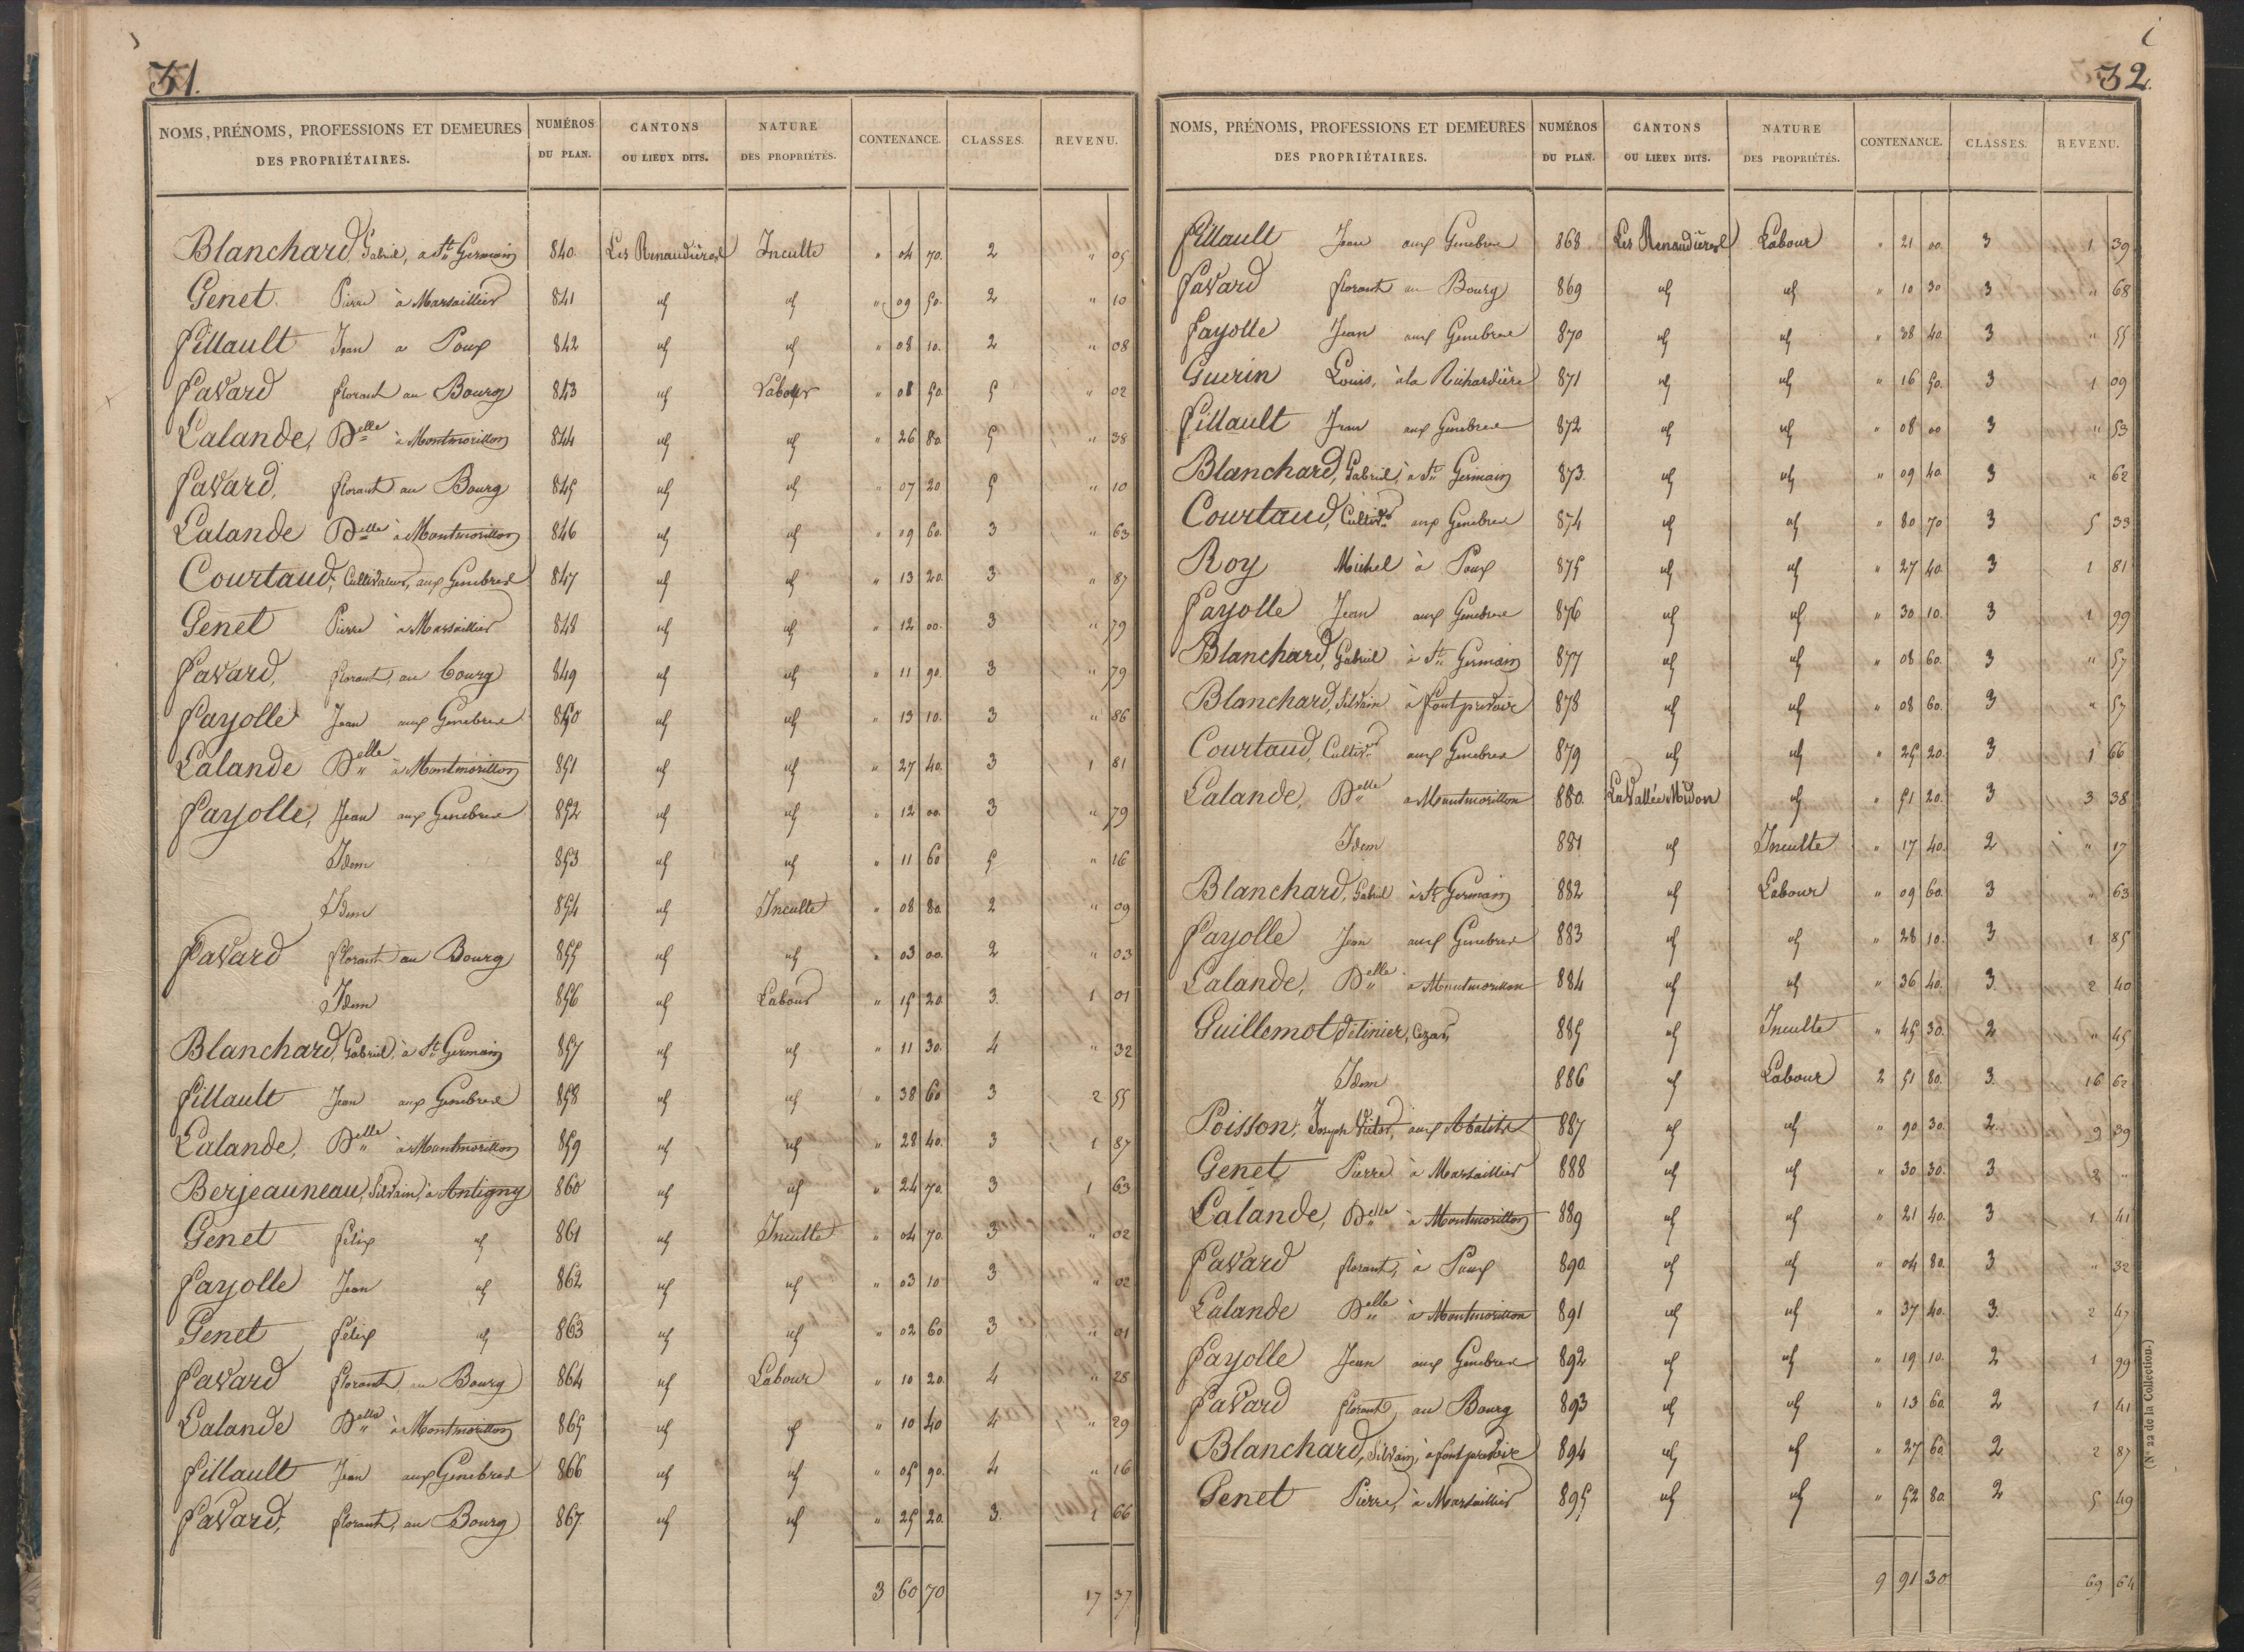 31.
NOMS, PRÉNOMS, PROFESSIONS ET DEMEURES DES PROPRIÉTAIRES. NUMÉROS DU PLAN. CANTONS OU LIEUX DITS. NATURE DES PROPRIÉTÉS. CONTENANCE. CLASSES. REVENU.
Blanchard, Gabriel, à St Germain 840. Les Renaudières Inculte " 04 70. 2 " 05
Genet Pierre à Marsaillier 841 id id " 09 50. 2 " 10
fillault Jean a Poux 842 id id " 08 10. 2 " 08
favard florant au Bourg 843 id Labour " 08 50. 5 " 02
Lalande, Delle à Montmorillon 844 id id " 26 80. 5 " 38
favard, florant au Bourg 845 id id " 07 20 5 " 10
Lalande Delle à Montmorillon 846 id id " 09 60. 3 " 63
Courtaud, Cultivateur, aux Genebres 847 id id " 13 20. 3 " 87
Genet Pierre à Marsaillier 848 id id " 12 00. 3 " 79
favard, florant, au bourg 849 id id " 11 90. 3 " 79
fayolle Jean aux Genebres 850 id id " 13 10. 3 " 86
Lalande Delle à Montmorillon 851 id id " 27 40. 3 1 81
fayolle, Jean aux Genebres 852 id id " 12 00. 3 " 79
Idem 853 id id " 11 60 5 " 16
Idem 854 id Inculte " 08 80. 2 " 09
favard florant au Bourg 855 id id " 03 00. 2 " 03
Idem 856 id Labour " 15 20. 3. 1 01
Blanchard, Gabriel, à St Germain 857 id id " 11 30. 4 " 32
fillault Jean aux Genebres 858 id id " 38 60 3 2 55
Lalande, Delle à Montmorillon 859 id id " 28 40. 3 1 87
Berjeauneau, Silvain, à Antigny 860 id id " 24 70. 3 1 63
Genet félix id 861 id Inculte " 04 70. 3 " 02
fayolle Jean id 862 id id " 03 10 3 " 02
Genet félix id 863 id id " 02 60 3 " 01
favard florant au Bourg 864 id Labour " 10 20. 4 " 28
Lalande Delle à Montmorillon 865 id id " 10 40 4 " 29
fillault Jean aux Genebres 866 id id " 05 90. 4 " 16
favard, florant, au Bourg 867. id id " 25 20. 3. 1 66
3 60 70 17 37
32.
NOMS, PRÉNOMS, PROFESSIONS ET DEMEURES DES PROPRIÉTAIRES. NUMÉROS DU PLAN. CANTONS OU LIEUX DITS. NATURE DES PROPRIÉTÉS. CONTENANCE. CLASSES. REVENU.
fillault Jean aux Genebres 868 Les Renaudières Labour " 21 00. 3 1 39
favard florant au Bourg 869 id id " 10 30 3 " 68
fayolle Jean aux Genebres 870 id id " 38 40. 3 " 55
Guerin Louis, à la Richardière 871 id id " 16 50. 3 1 09
fillault Jean aux Genebres 872 id id " 08 00 3 " 53
Blanchard, Gabriel, à St Germain 873. id id " 09 40. 3 " 62
Courtaud, Cultivr aux Genebres 874 id id " 80 70 3 5 33
Roy Michel à Poux 875 id id " 27 40. 3 1 81
fayolle Jean aux Genebres 876 id id " 30 10. 3 1 99
Blanchard, Gabriel à St Germain 877 id id " 08 60. 3 " 57
Blanchard, Silvain à fontprevoir 878 id id " 08 60. 3 " 57
Courtaud, Cultivr aux Genebres 879 id id " 25 20. 3 1 66
Lalande, Delle à Montmorillon 880. La Vallée Midon id " 51 20. 3 3 38
Idem 881 id Inculte " 17 40. 2 " 17
Blanchard, Gabriel à St Germain 882 id Labour " 09 60. 3 " 63
fayolle Jean aux Genebres 883 id id " 28 10. 3 1 85
Lalande, Delle à Montmorillon 884 id id " 36 40. 3. 2 40
Guillemot Cezar, 885 id Inculte " 45 30. 2 " 45
Idem 886 id Labour 2 51 80. 3. 16 62
Poisson, Joseph Victor, aux Abatits 887 id id " 90 30. 2 9 39
Genet Pierre à Marsaillier 888 id id " 30 30. 3 2 "
Lalande, Delle à Montmorillon 889 id id " 21 40. 3 1 41
favard florant, à Poux 890. id id " 04 80. 3 " 32
Lalande Delle à Montmorillon 891 id id " 37 40. 3. 2 47
fayolle Jean aux Genebres 892 id id " 19 10. 2 1 99
favard florant, au Bourg 893 id id " 13 60. 2 1 41
Blanchard, Silvain, à fontprevoir 894 id id " 27 60 2 2 87
Genet Pierre, à Marsaillier 895 id id " 52 80. 2 5 49
9 91 30 69 64
(N° 22 de la Collection.)